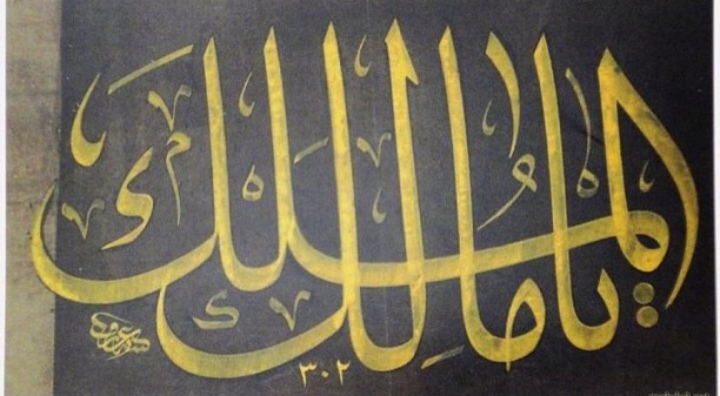 يا مالك الملك
٣٠٢